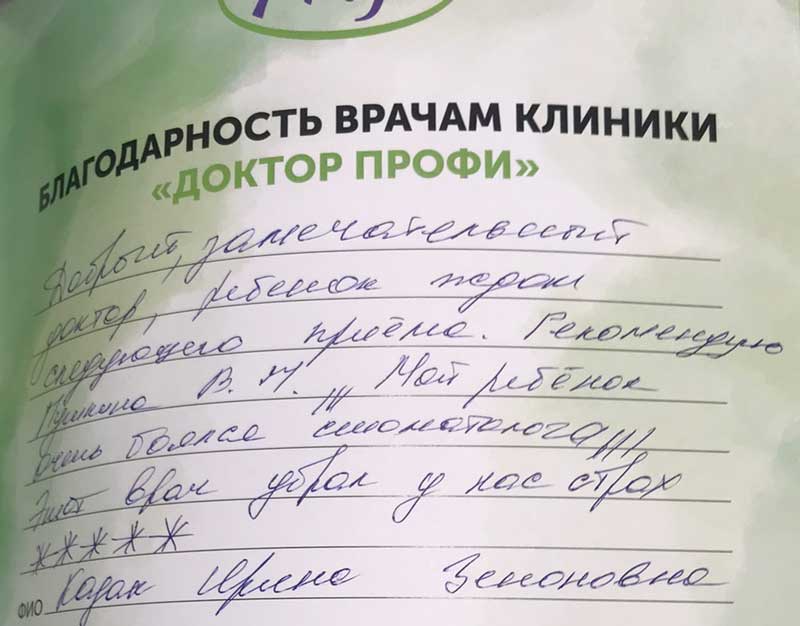 БЛАГОДАРНОСТЬ ВРАЧАМ КЛИНИКИ
«ДОКТОР ПРОФИ»
Добрый, замечательный
доктор, ребенок ждал
следующего приёма. Рекомендую
Пушкина В. М. Мой ребёнок
очень боялся стоматолога!!!
Этот врач убрал у нас страх
*****
ФИО Казак Ирина Зеноновна